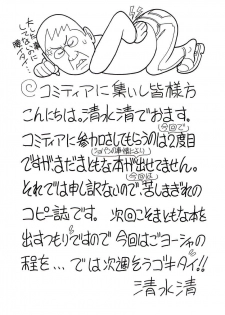 コミティアに集いし皆様方
こんにちは。清水清でおます。
今回で
コミティアに参加さしてもらうのは2度目
ジョバンの事情により
ですが、まだまともな本が出せてません。
今回は
それでは申し訳ないので苦しまぎれの
コピー誌です。次回こそまともな本を
出すつもりですので今回はごヨーシャの
程を…では次週そうゴキタイ!!
清水清